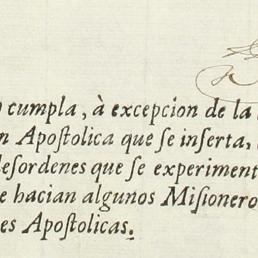 cumpla, à excepcion de la
n Apoſtolica que ſe inſerta,
deſordenes que ſe experiment
e hacian algunos Miſionero
es Apoſtolicas.